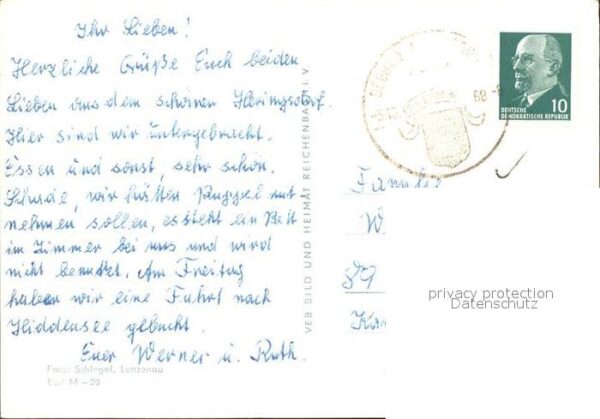 Ihr Lieben!
Herzliche Grüße Euch beiden
Lieben aus dem schönen Heringsdorf.
Hier sind wir untergebracht.
Essen und sonst sehr schön.
Schade, wir hätten mit
nehmen sollen, es steht ein Bett
im Zimmer bei uns und wird
nicht benutzt. Am Freitag
haben wir eine Fahrt nach
Hiddensee gebucht.
Euer Werner u. Ruth.
Foto: Schlegel, Lunzenau
M – 20
VEB BILD UND HEIMAT REICHENBACH I. V.
68
10
DEUTSCHE
DEMOKRATISCHE REPUBLIK
Familie
W
privacy protection
Datenschutz